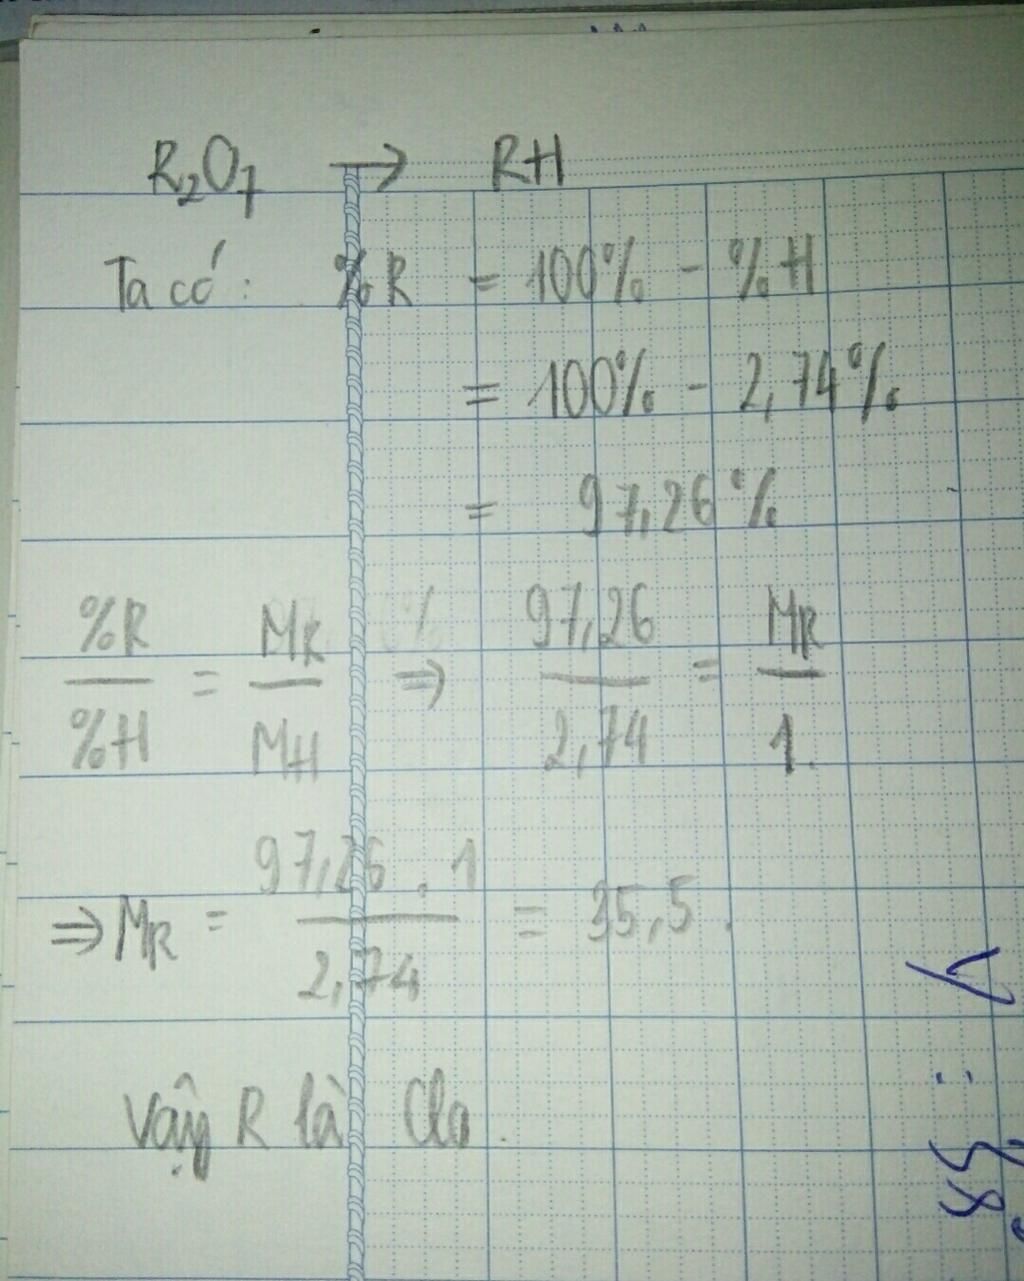 R₂O₇ → RH
Ta có: %R = 100% - %H
= 100% - 2,74%
= 97,26%
%R/%H = MR/MH ⇒ 97,26/2,74 = MR/1.
⇒ MR = 97,26 . 1/2,74 = 35,5.
Vậy R là Clo.